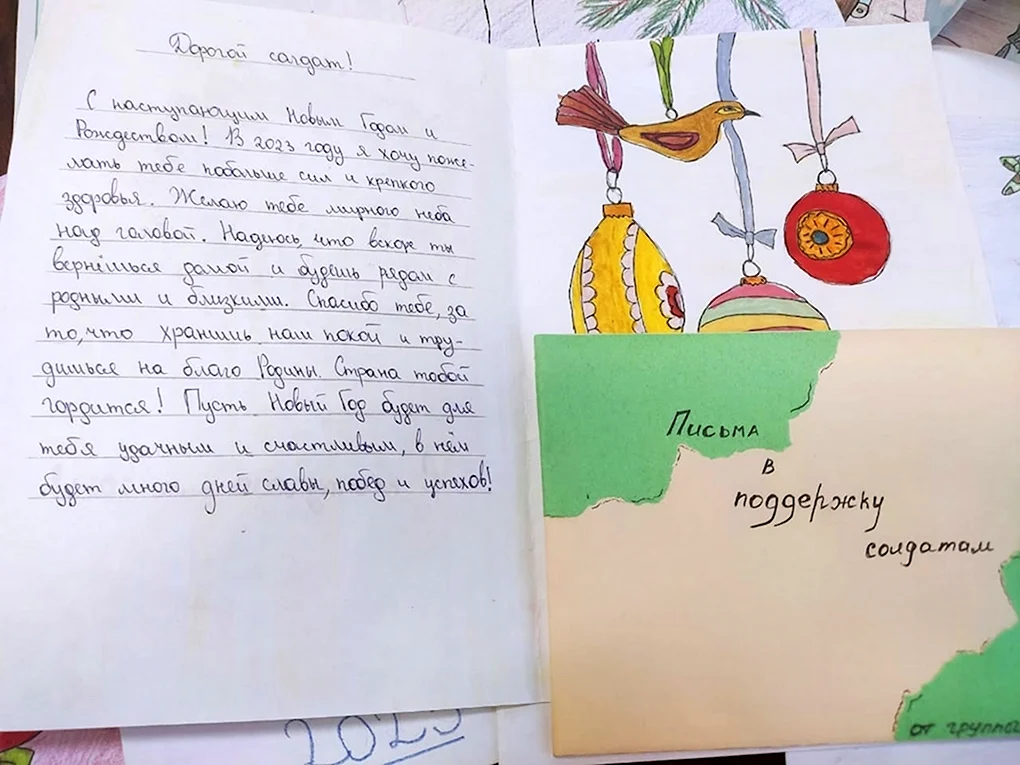 Дорогой солдат!
С наступающим Новым Годом и
Рождеством! В 2023 году я хочу поже-
лать тебе побольше сил и крепкого
здоровья. Желаю тебе мирного неба
над головой. Надеюсь, что вскоре ты
вернёшься домой и будешь рядом с
родными и близкими. Спасибо тебе, за
то, что хранишь наш покой и тру-
дишься на благо Родины. Страна тобой
гордится! Пусть Новый Год будет для
тебя удачным и счастливым, в нём
будет много дней славы, побед и успехов!
Письма
в
поддержку
солдатам
от группы
2023